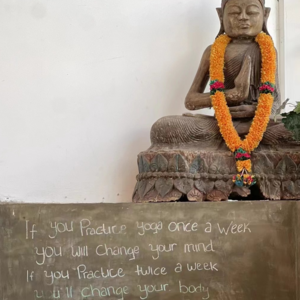 If you Practice yoga once a week
you will change your mind
If you Practice twice a week
you'll change your body